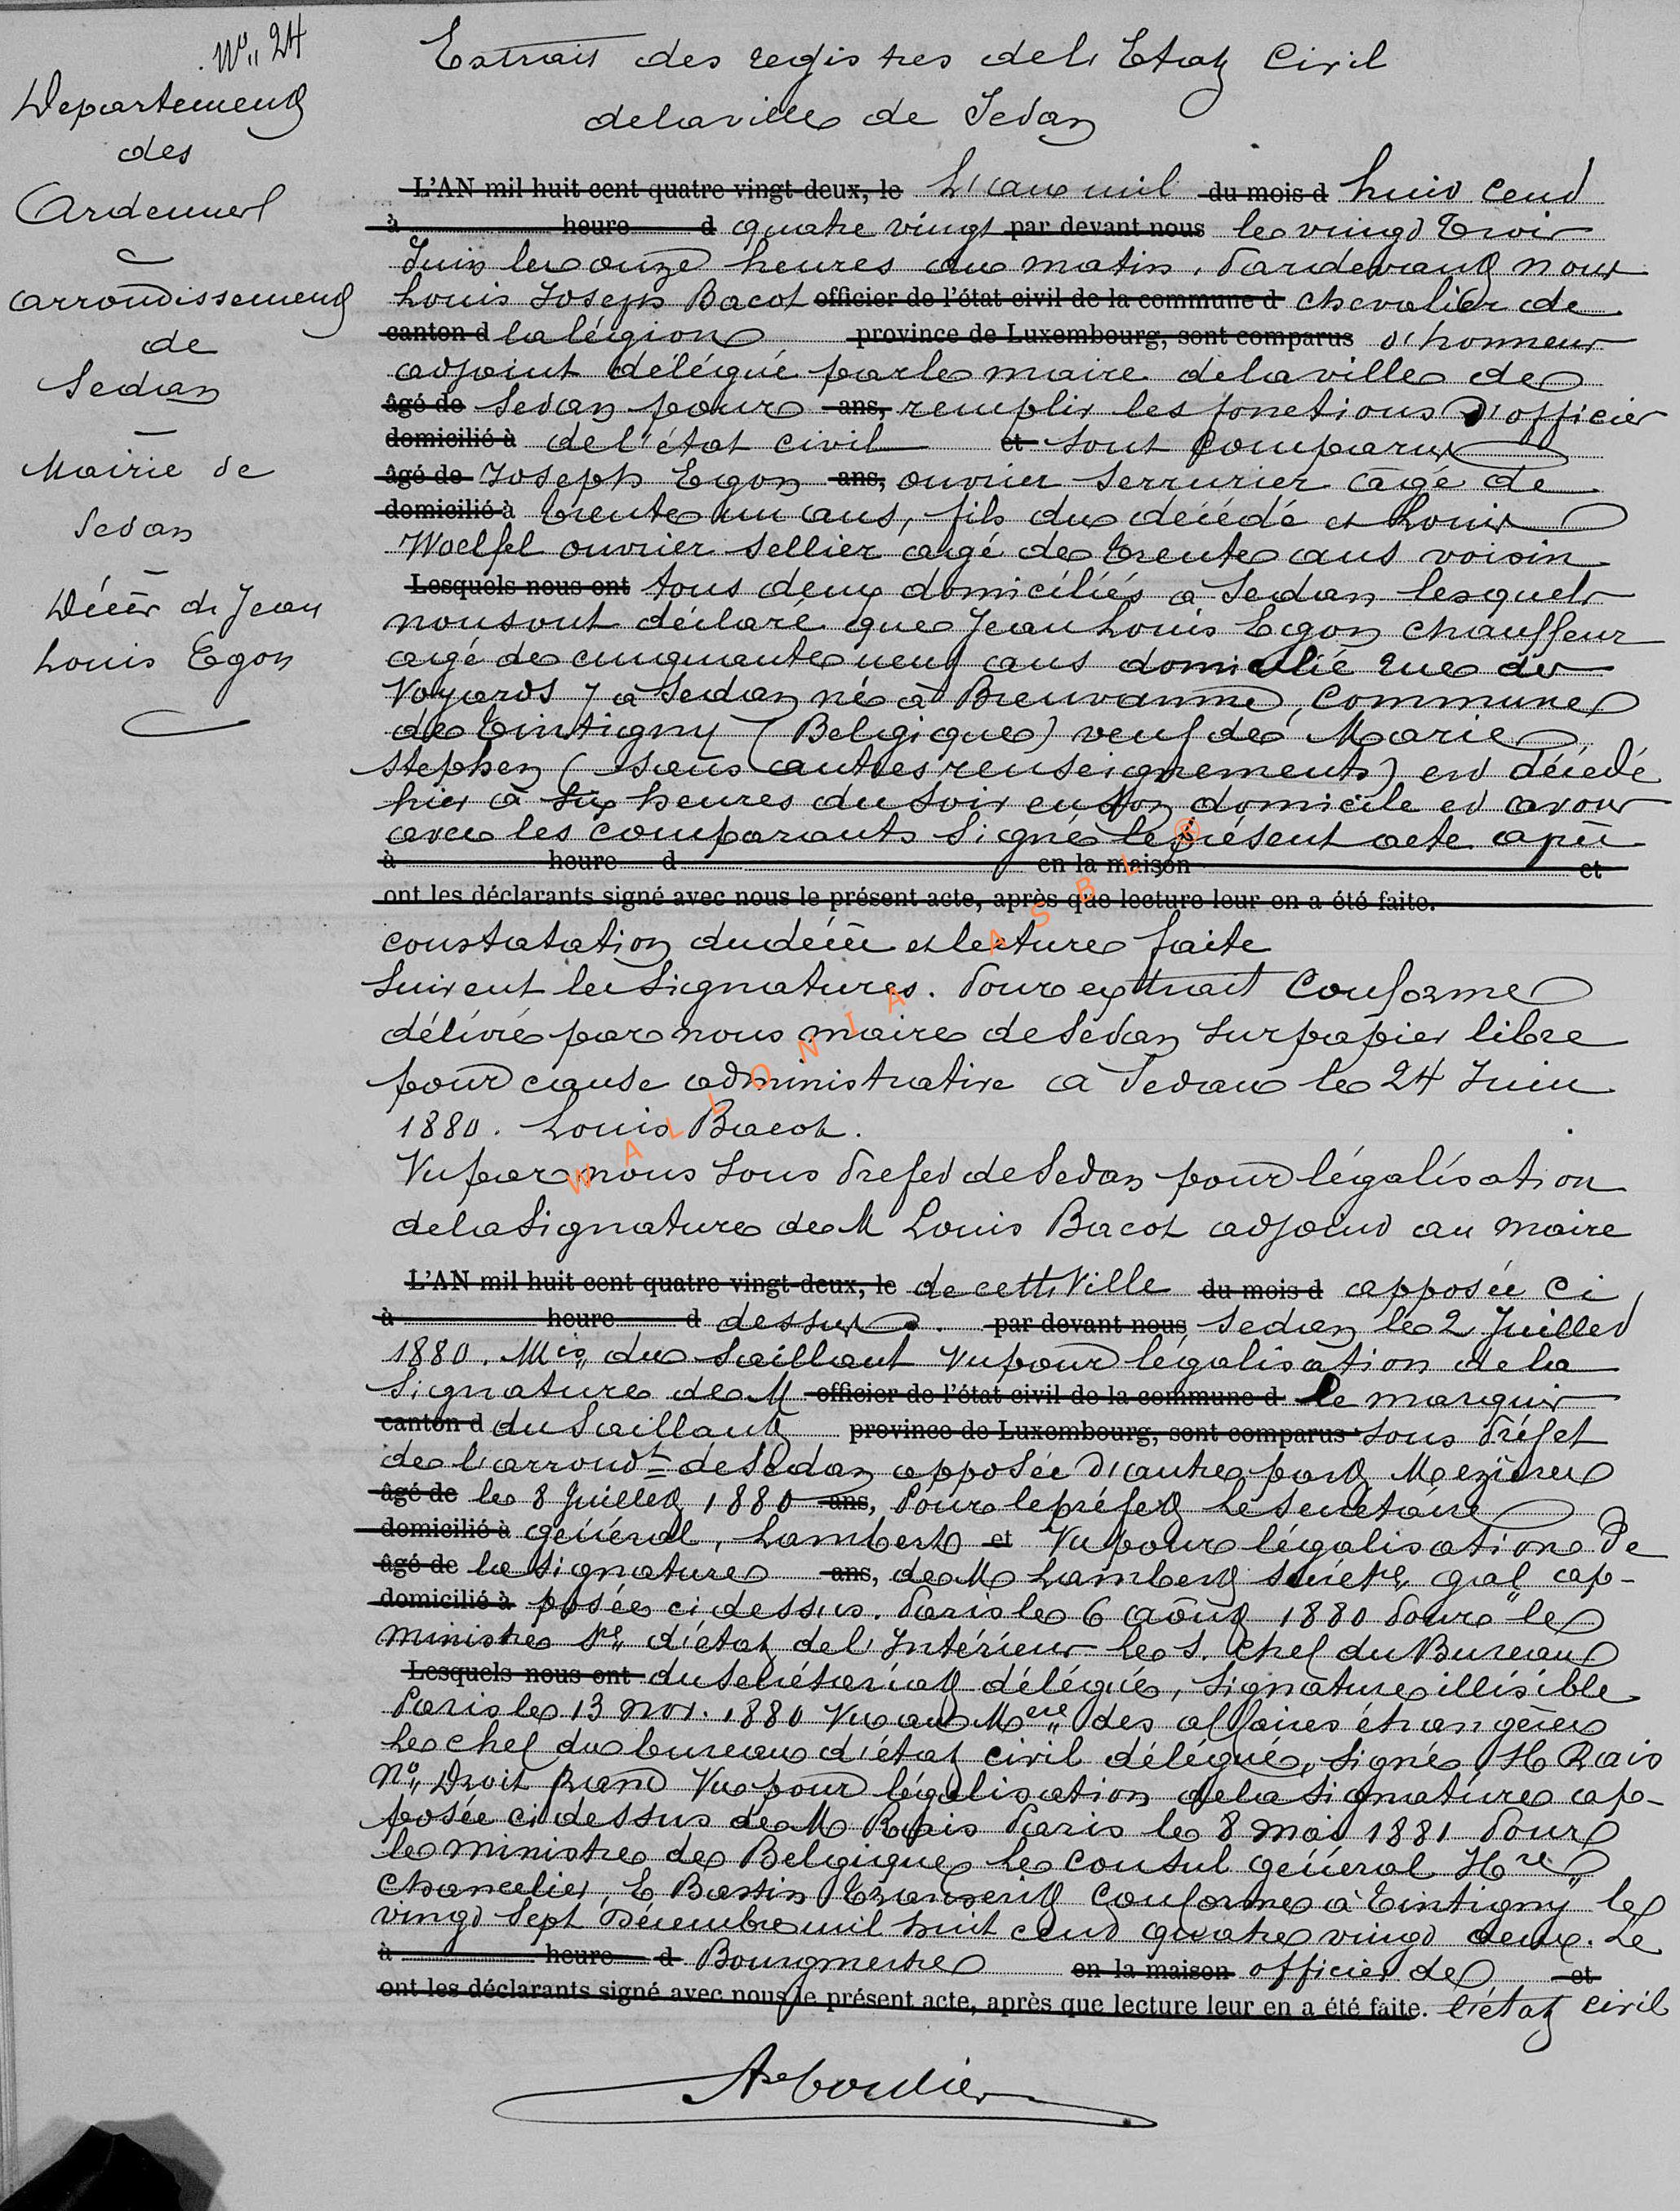 N° 24
Departement
des
Ardennes
arrondissement
de
Sedan
Mairie de
Sedan
Décès de Jean
Louis Egon
Extrait des registres de l'Etat Civil
de la ville de Sedan
L'AN mil huit cent quatre vingt-deux, le L'an mil du mois d huit cent
à heure d quatre vingt par devant nous le vingt trois
Juin les onze heures du matin, Pardevant nous
Louis Joseph Bacot officier de l'état civil de la commune d chevalier de
canton d la légion province de Luxembourg, sont comparus d'honneur
adjoint délégué par le maire de la ville de
âgé de Sedan pour ans, remplir les fonctions d'officier
domicilié à de l'état civil et sont comparus
âgé de Joseph Egon ans, ouvrier serrurier âgé de
domicilié à trente un ans, fils du décédé et Louis
Woelfel ouvrier sellier âgé de trente ans voisin
Lesquels nous ont tous deux domiciliés à Sedan lesquels
nous ont déclaré que Jean Louis Egon chauffeur
âgé de cinquante neuf ans domicilié rue des
Voyards 7 à Sedan né à Breuvanne, commune
de Tintigny (Belgique) veuf de Marie
Stephen (sans autres renseignements) est décédé
hier à six heures du soir en son domicile et avons
avec les comparants signé le présent acte après
à heure d en la maison et
ont les déclarants signé avec nous le présent acte, après que lecture leur en a été faite.
constatation du décès et lecture faite
Suivent les signatures. Pour extrait conforme
délivré par nous maire de Sedan sur papier libre
pour cause administrative à Sedan le 24 Juin
1880. Louis Bacot.
Vu par nous Sous Prefet de Sedan pour légalisation
de la signature de M Louis Bacot adjoint au maire
L'AN mil huit cent quatre vingt-deux, le de cette Ville du mois d apposée ci
à heure d dessus. par devant nous Sedan le 2 Juillet
1880. Mis du Saillant Vu pour légalisation de la
Signature de M officier de l'état civil de la commune d le marquis
canton d du Saillant province de Luxembourg, sont comparus Sous Préfet
de l'arrondt de Sedan apposée d'autre part Mezières
âgé de le 8 Juillet 1880 ans, Pour le préfet Le Secrétaire
domicilié à général, Lambert et Vu pour légalisation de
âgé de la signature ans, de M Lambert Secétre gal ap-
domicilié à posée ci dessus. Paris le 6 août 1880 Pour le
ministre Sre d'état de l'Intérieur Le S. Chef du Bureau
Lesquels nous ont du Secrétariat délégué, Signature illisible
Paris le 13 nov. 1880 Vu au Mere des affaires étrangères
Le chef du bureau d'état civil délégué, signé, H Rais
N° Droit franc Vu pour légalisation de la Signature ap-
posée ci dessus de M Rais Paris le 8 mai 1881 Pour
le ministre de Belgique Le Consul général Hre
Chancelier, E Bastin Transcrit conforme à Tintigny le
vingt Sept Décembre mil huit cent quatre vingt deux. Le
à heure d Bourgmestre en la maison officier de et
ont les déclarants signé avec nous le présent acte, après que lecture leur en a été faite. l'état civil
WALLONIA ASBL ®